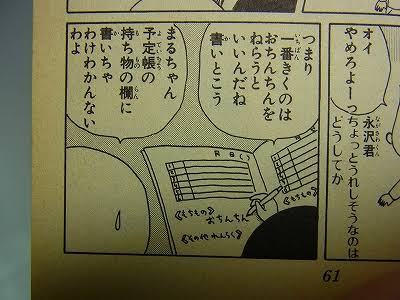 オイ
やめろよーっ
永沢君
ちょっとうれしそうなのは
どうしてか
つまり
一番きくのは
おちんちんを
ねらうと
いいんだね
書いとこう
まるちゃん
予定帳の
持ち物の欄に
書いちゃ
わけわかんない
わよ
月 日( )
《もちもの》
《もちもの》
おちんちん
《その他 れんらく》
61